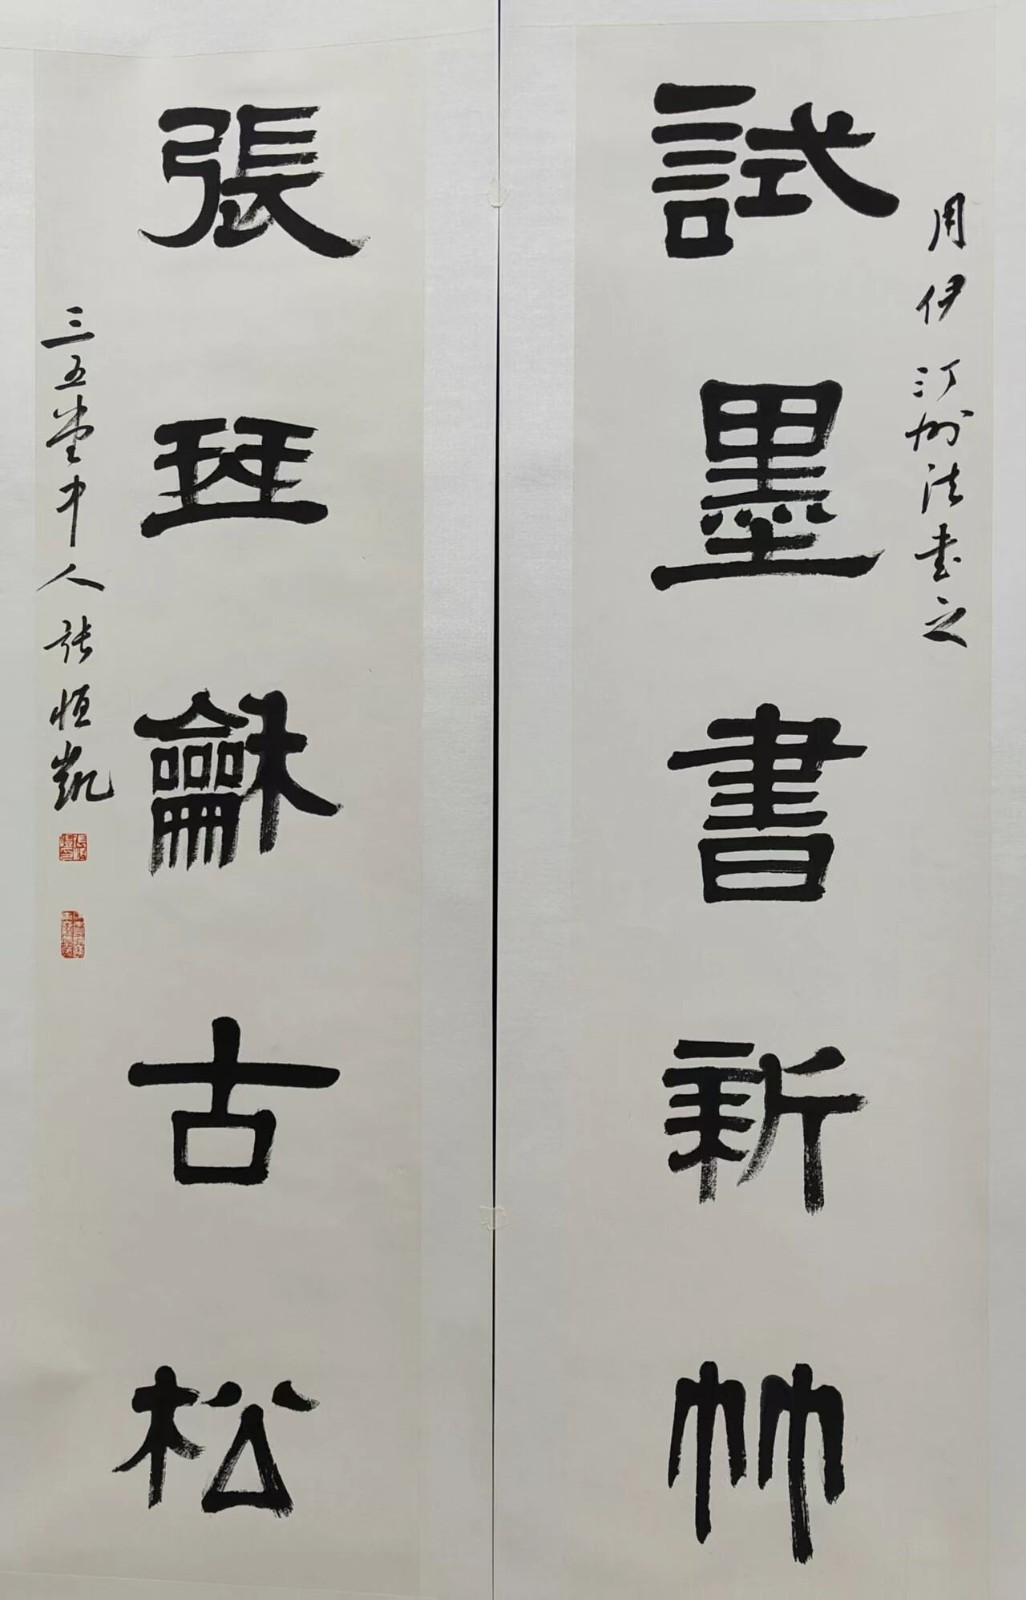 用伊汀州法書之
試墨書新竹
張珡龢古松
三五堂中人張恒凱